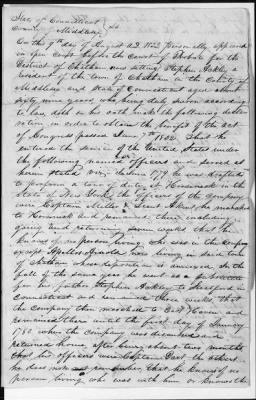 State of Connecticut
County of Middlesex } ss
On this 9th day of August AD. 1832 Personally appeared
in open Court before the Court of Probate for the
District of Chatham now sitting Stephen Ackley a
resident of the town of Chatham in the County of
Middlesex and State of Connecticut aged about
sixty nine years who being duly sworn according
to law doth on his oath make the following decla-
ration in order to obtain the benefit of the act
of Congress passed June 7th 1832. That he
entered the service of the United States under
the following named officers and served as
herein stated viz. In June 1779 he was drafted
to perform a tour of duty at
State the Officers of the Company
were Captain Miller & Lieut he marched
to and remained there including
going and returning seven weeks that he
knows of no person living who was in the Company
except now living in said town
of Chatham whose deposition is annexed. In the
fall of the same year he went as a substitute
for his father Stephen Ackley to
Connecticut and remained three weeks. That
the Company then marched to East Haven and
remained there until the first day of January
1780 when the Company was dismissed and
returned home after being about two months
that his officers were Captain the others
he does not remember, that he knows of no
person living who was with him or knows the